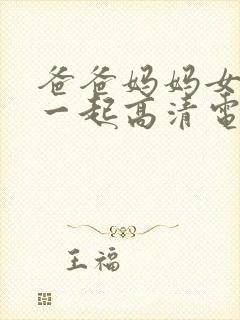 爸爸妈妈女
一起高清电
王福